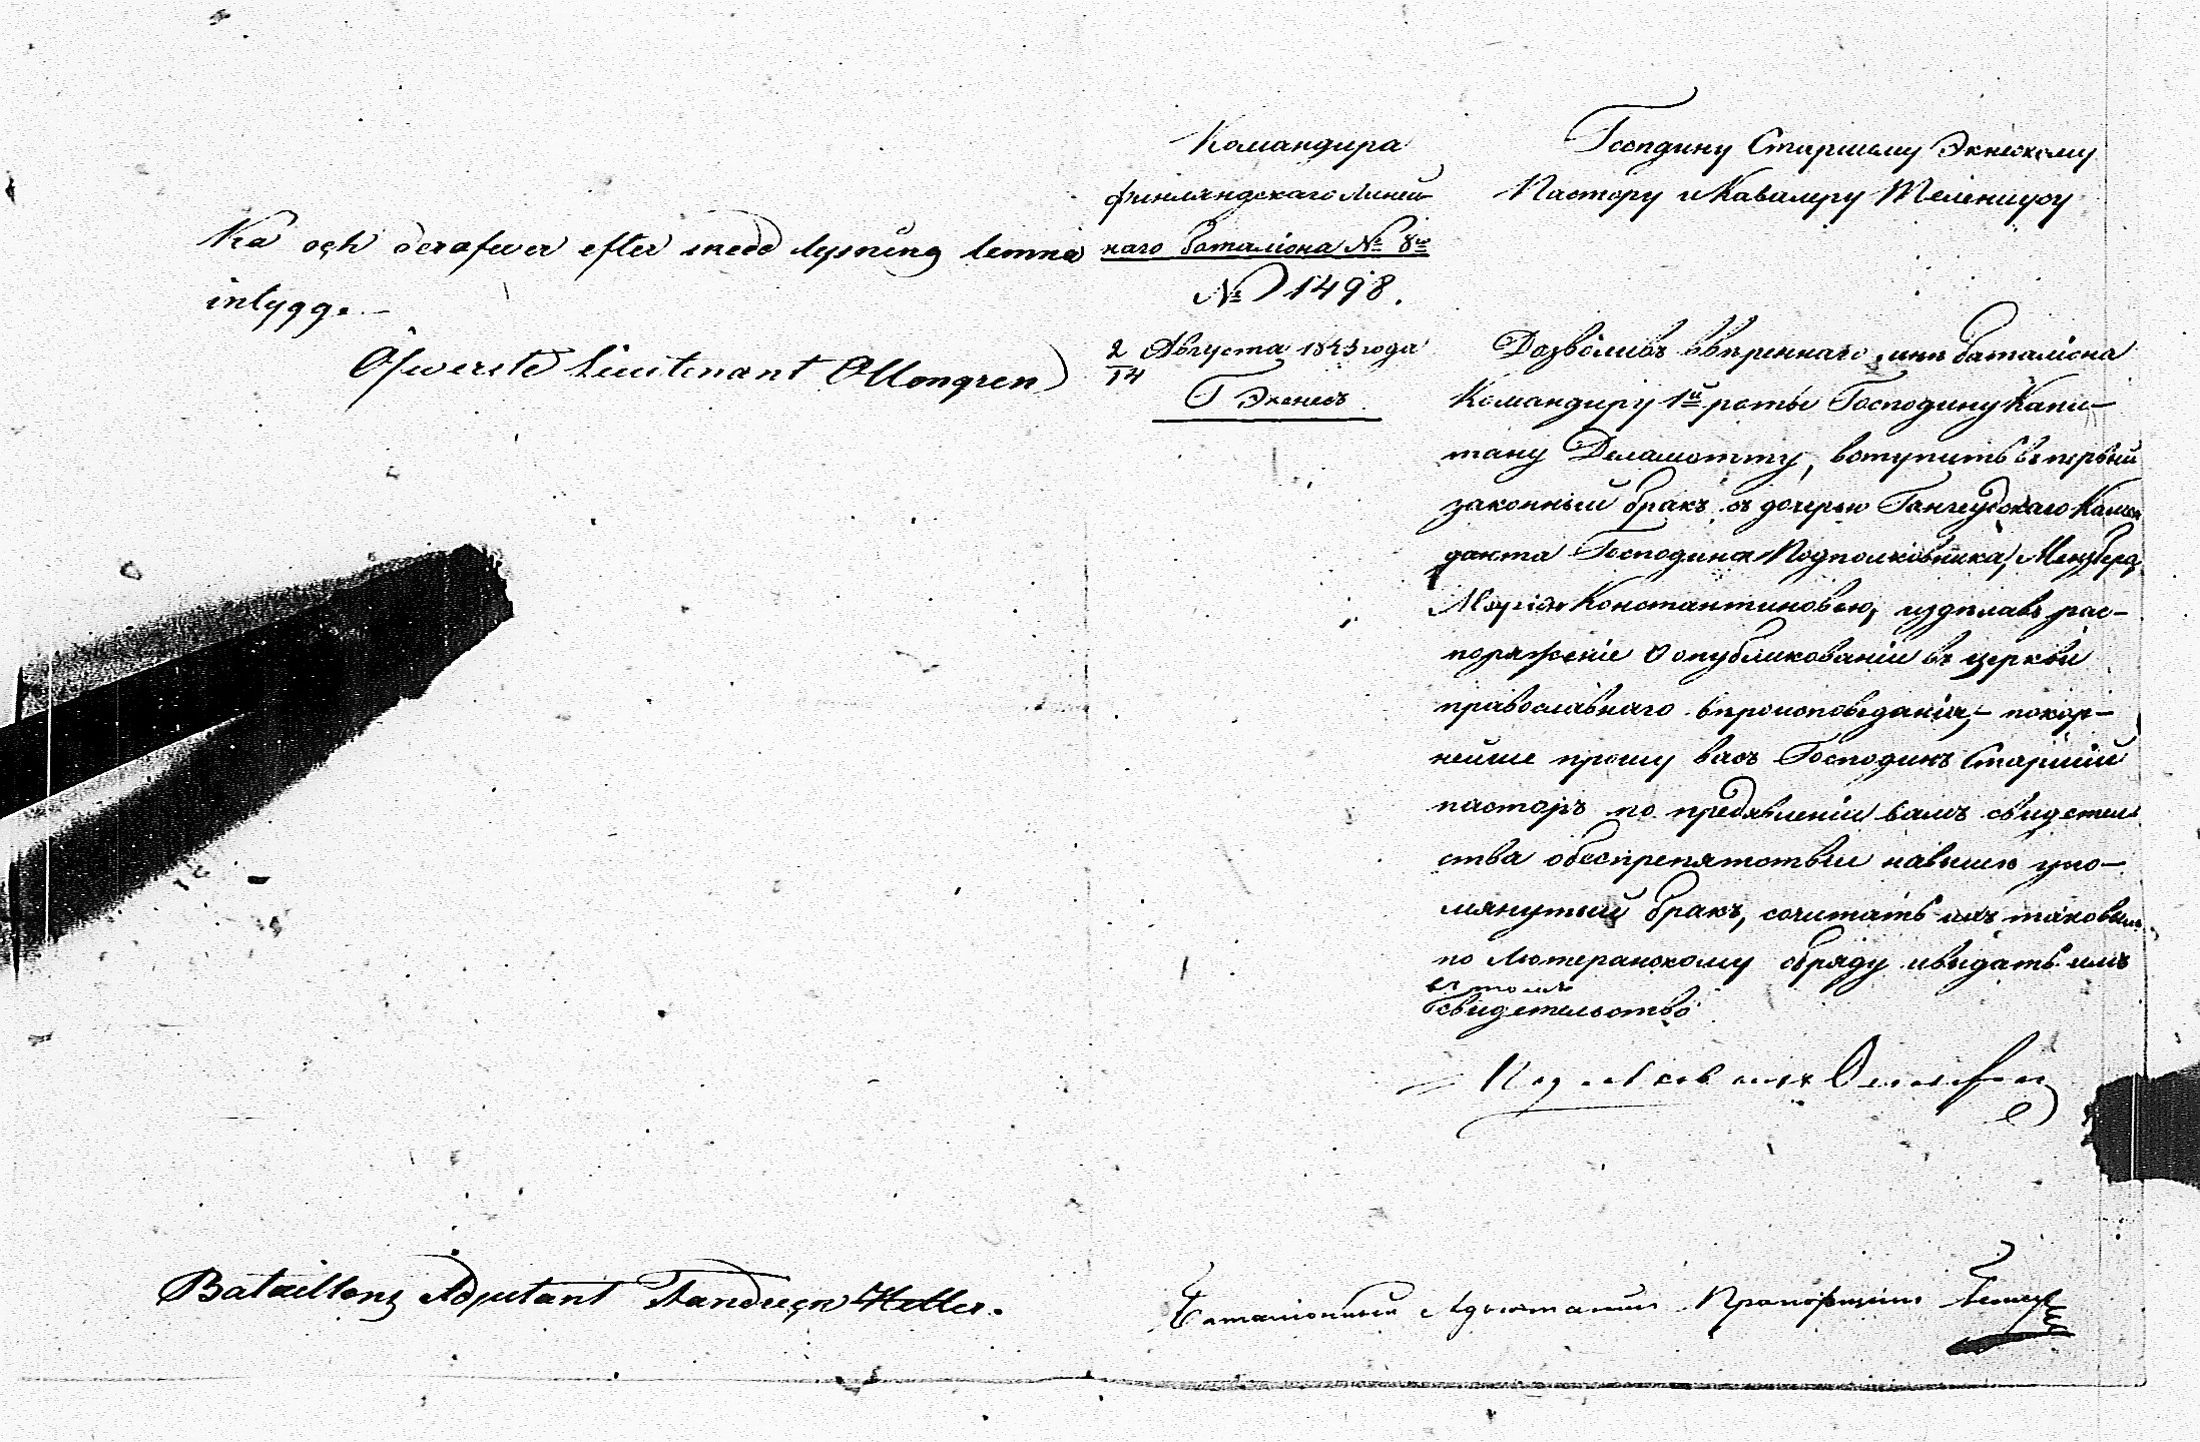 ka och derofwer efter skedd lysning lemna
intyg.
Öfwerste Lieutenant Ollongren
Bataillons Adjutant Fandrijen Heller.
Командира
Финляндскаго Линей
наго баталіона № 8го
№ 1498.
2/14 Августа 1843 года
Г Экнесъ
Господину Старшему Экнескому
Пастору и Кавалеру
Дозволивъ ввѣреннаго мнѣ баталіона
Командиру 1й роты Господину Капи-
тану Деламотту, вступить въ первый
законный бракъ съ дочерью Гангеудскаго Комен
данта Господина Подполковника,
Константиновою, издѣлавъ рас-
поряженіе о опубликованіи въ церкви
православнаго вѣроисповѣданія, покор-
нейше прошу васъ Господинъ Старшій
пасторъ по предявленіи вамъ свидетель
ства обеспрепятствіи навыше упо-
мянутый бракъ, сочитать ихъ таковымъ
по Лютеранскому обряду ивыдать имъ
въ томъ
свидетельство
Подполковникъ
Баталіонный Адъютантъ Прапорщикъ